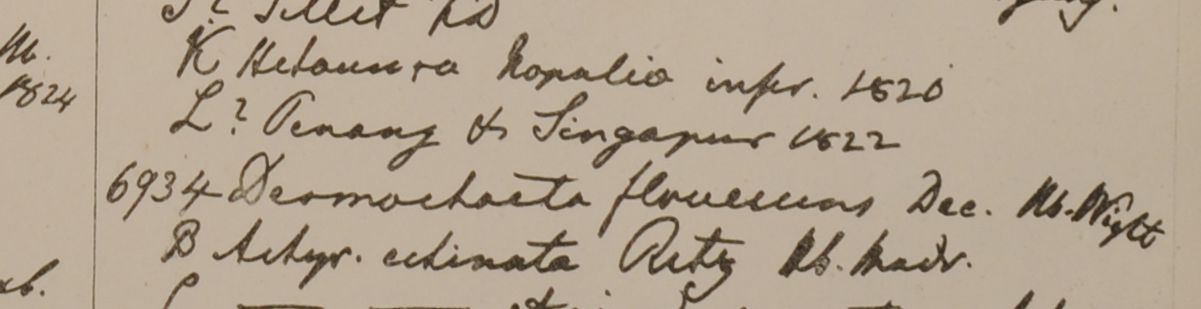 Hb.
1824
K Hetaunra Nopalia infer. 1820
L? Penang & Singapur 1822
6934 Desmochaeta flavescens Dec. Hb. Wight
B Achyr. echinata Retz Hb. Madr.
xb.